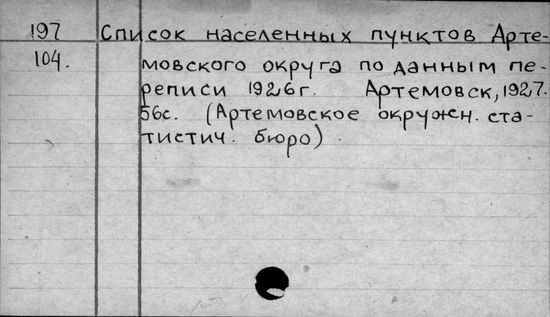 197 Список населенных пунктов Арте-
104. мовского округа по данным пе-
реписи 1926г. Артемовск, 1927.
56с. (Артемовское окружн. ста-
тистич. бюро).